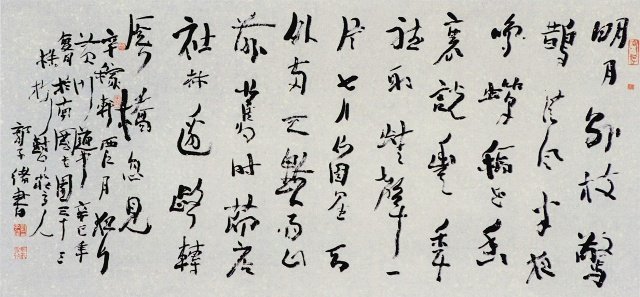 明月別枝驚
鵲清風半夜
鳴蟬稻花香
裏說豐年
聽取蛙聲一
片七八個星天
外兩三點雨山
前舊時茅店
社林邊路轉
溪橋忽見
辛稼軒西江月夜行
黃沙道中辛巳年
郭子緒書